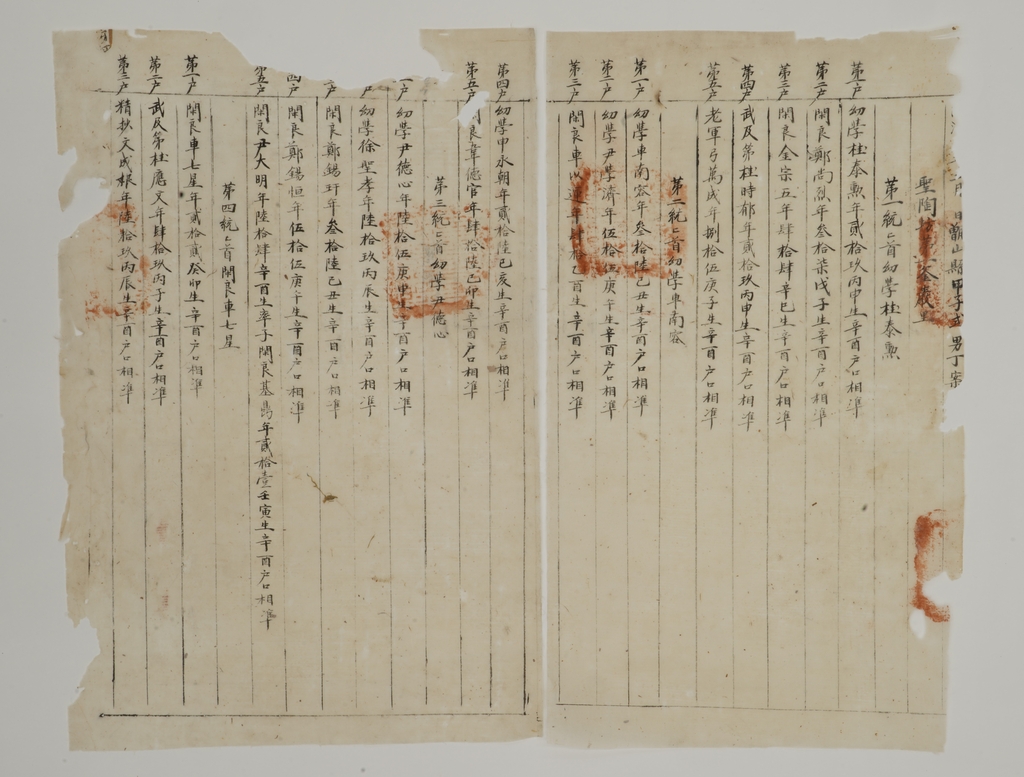 月 日 山縣甲子式男丁案
聖陶
第一統統首幼學杜泰勳
第一戶 幼學杜泰勳年貳拾玖丙申生辛酉戶口相準
第二戶 閑良鄭尚烈年叁拾柒戊子生辛酉戶口相準
第三戶 閑良全宗五年肆拾肆辛巳生辛酉戶口相準
第四戶 武及第杜時郁年貳拾玖丙申生辛酉戶口相準
第五戶 老軍弓萬成年捌拾伍庚子生辛酉戶口相準
第二統統首幼學車南容
第一戶 幼學車南容年叁拾陸己丑生辛酉戶口相準
第二戶 幼學尹學濟年伍拾伍庚午生辛酉戶口相準
第三戶 閑良車以運年肆拾乙酉生辛酉戶口相準
第四戶 幼學申永朝年貳拾陸己亥生辛酉戶口相準
第五戶 閑良韋德官年肆拾陸己卯生辛酉戶口相準
第三統統首幼學尹德心
一戶 幼學尹德心年陸拾伍庚申生辛酉戶口相準
戶 幼學徐聖孝年陸拾玖丙辰生辛酉戶口相準
戶 閑良鄭錫玕年叁拾陸己丑生辛酉戶口相準
四戶 閑良鄭錫恒年伍拾伍庚午生辛酉戶口相準
第五戶 閑良尹大明年陸拾肆辛酉生率子閑良基萬年貳拾壹壬寅生辛酉戶口相準
第四統統首閑良車七星
第一戶 閑良車七星年貳拾貳癸卯生辛酉戶口相準
第二戶 武及第杜應文年肆拾玖丙子生辛酉戶口相準
第三戶 精抄文成根年陸拾玖丙辰生辛酉戶口相準